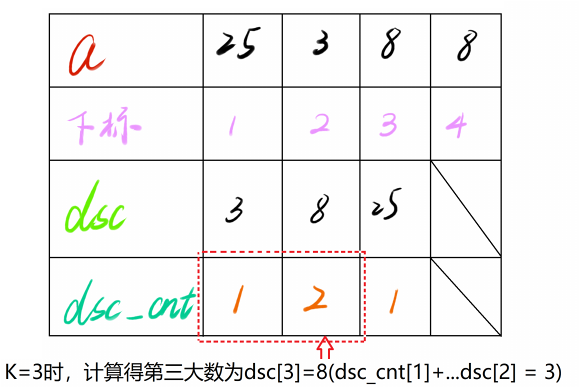 a 25 3 8 8
下标 1 2 3 4
dsc 3 8 25
dsc_cnt 1 2 1
K=3时，计算得第三大数为dsc[3]=8(dsc_cnt[1]+...dsc[2] = 3)